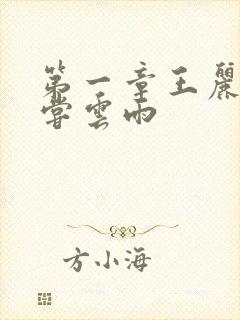 第一章王麗
嘗雲雨
方小海